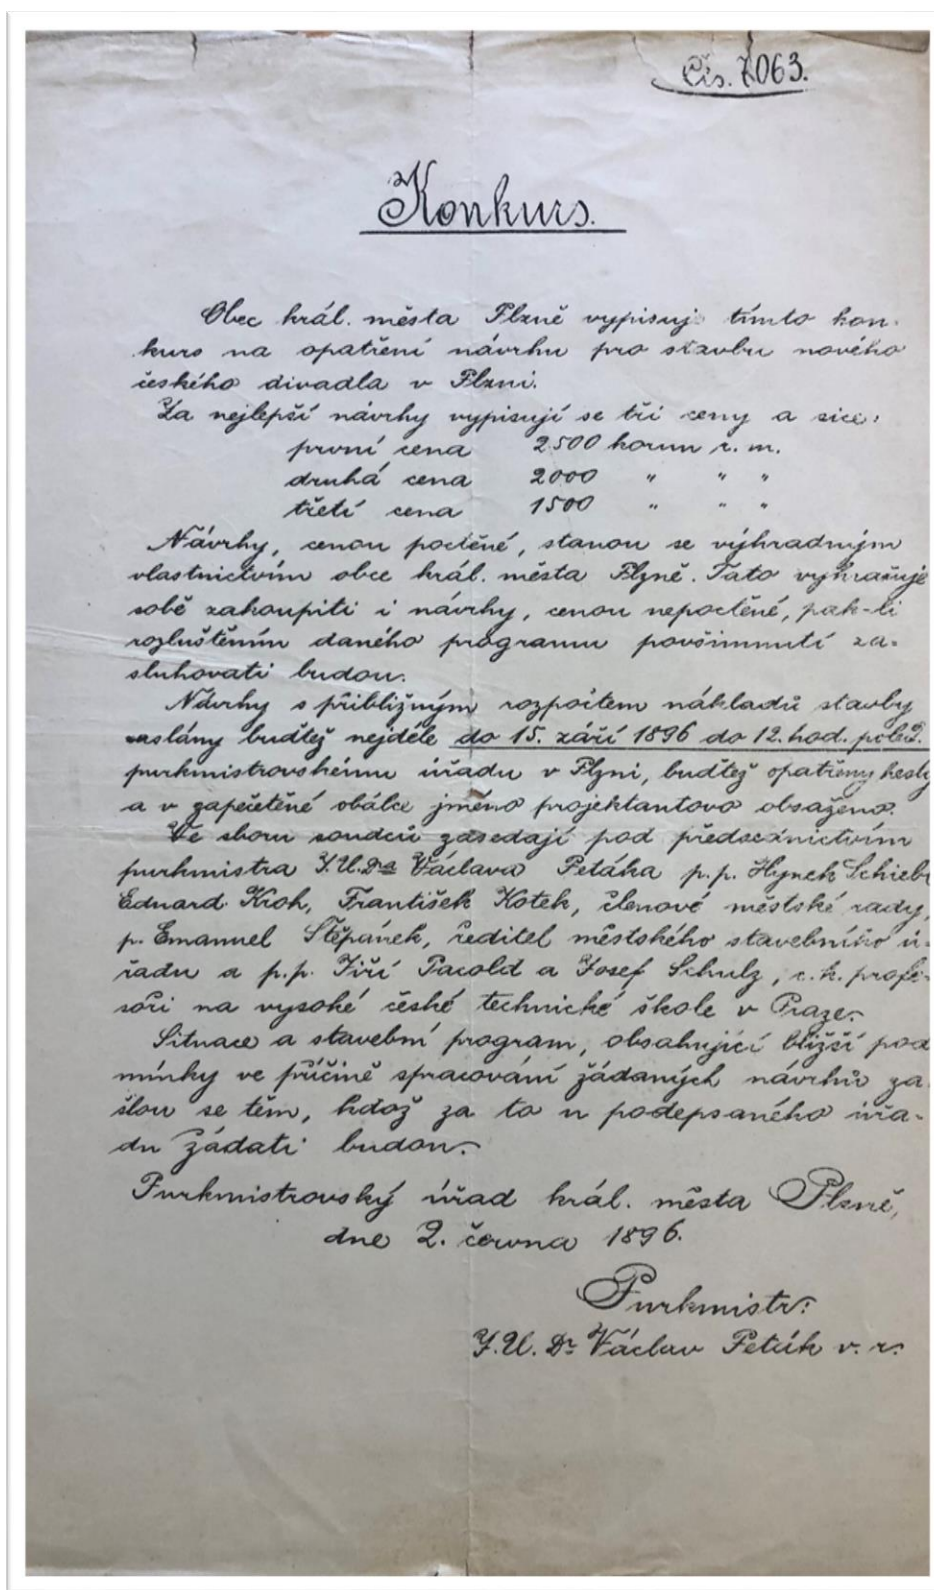 Čís. 7063.
Konkurs.
Obec král. města Plzně vypisuje tímto kon-
kurs na opatření návrhu pro stavbu nového
českého divadla v Plzni.
Za nejlepší návrhy vypisují se tři ceny a sice:
první cena 2500 korun r. m.
druhá cena 2000 " " "
třetí cena 1500 " " "
Návrhy, cenou poctěné, stanou se výhradným
vlastnictvím obce král. města Plzně. Tato vyhražuje
sobě zakoupiti i návrhy, cenou nepoctěné, pak-li
rozluštěním daného programu povšimnutí za-
sluhovati budou.
Návrhy s přibližným rozpočtem nákladů stavby
zaslány buďtež nejdéle do 15. září 1896 do 12. hod. poled.
purkmistrovskému úřadu v Plzni, buďtež opatřeny hesly
a v zapečetěné obálce jméno projektantovo obsaženo.
Ve sboru soudců zasedají pod předsednictvím
purkmistra J.U.Dra Václava Petáka p.p. Hynek Schiebl
Eduard Kroh, František Kotek, členové městské rady,
p. Emanuel Štěpánek, ředitel městského stavebního ú-
řadu a p.p. Jiří Pacold a Josef Schulz, c. k. profe-
soři na vysoké české technické škole v Praze.
Situace a stavební program, obsahující bližší pod
mínky ve příčině spracování žádaných návrhů za
šlou se těm, kdož za to u podepsaného úřa-
du žádati budou.
Purkmistrovský úřad král. města Plzně,
dne 2. června 1896.
Purkmistr:
J.U. Dr Václav Peták v. r.